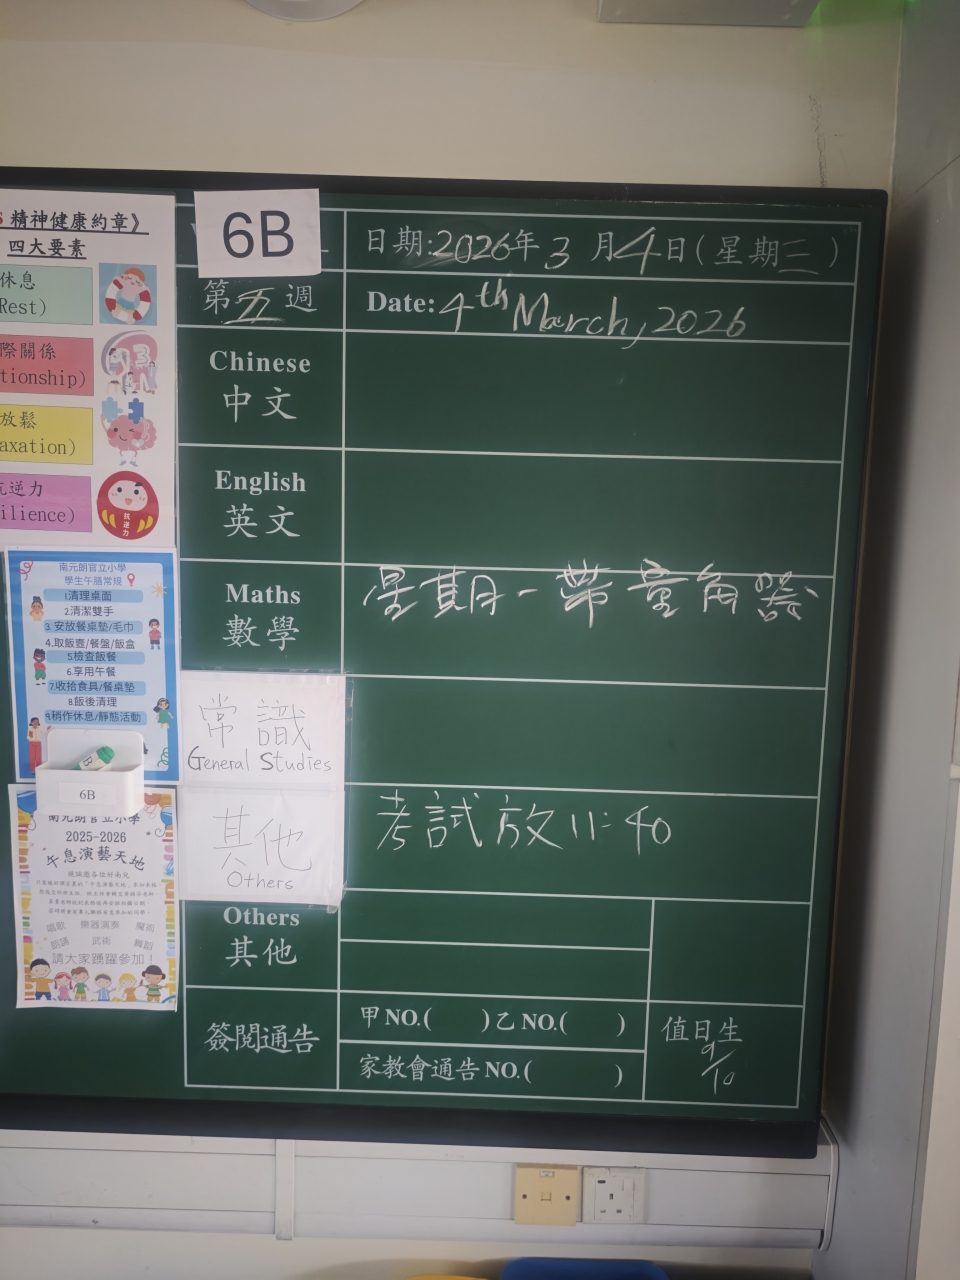 精神健康約章》
四大要素
休息
Rest)
際關係
tionship)
放鬆
axation)
抗逆力
ilience)
抗逆力
南元朗官立小學
學生午膳常規
1.清理桌面
2.清潔雙手
3.安放餐桌墊/毛巾
4.取飯壺/餐盤/飯盒
5.檢查飯餐
6.享用午餐
7.收拾食具/餐桌墊
8.飯後清理
9.稍作休息/靜態活動
6B
南元朗官立小學
2025-2026
午息演藝天地
唱歌 樂器演奏 魔術
朗誦 武術 舞蹈
請大家踴躍參加！
6B
日期:2026年3月4日(星期三)
第五週
Date: 4th March, 2026
Chinese
中文
English
英文
Maths
數學
星期一帶量角器
常識
General Studies
其他
Others
考試放11:40
Others
其他
簽閱通告
甲NO.( )乙NO.( )
家教會通告NO.( )
值日生
9/10